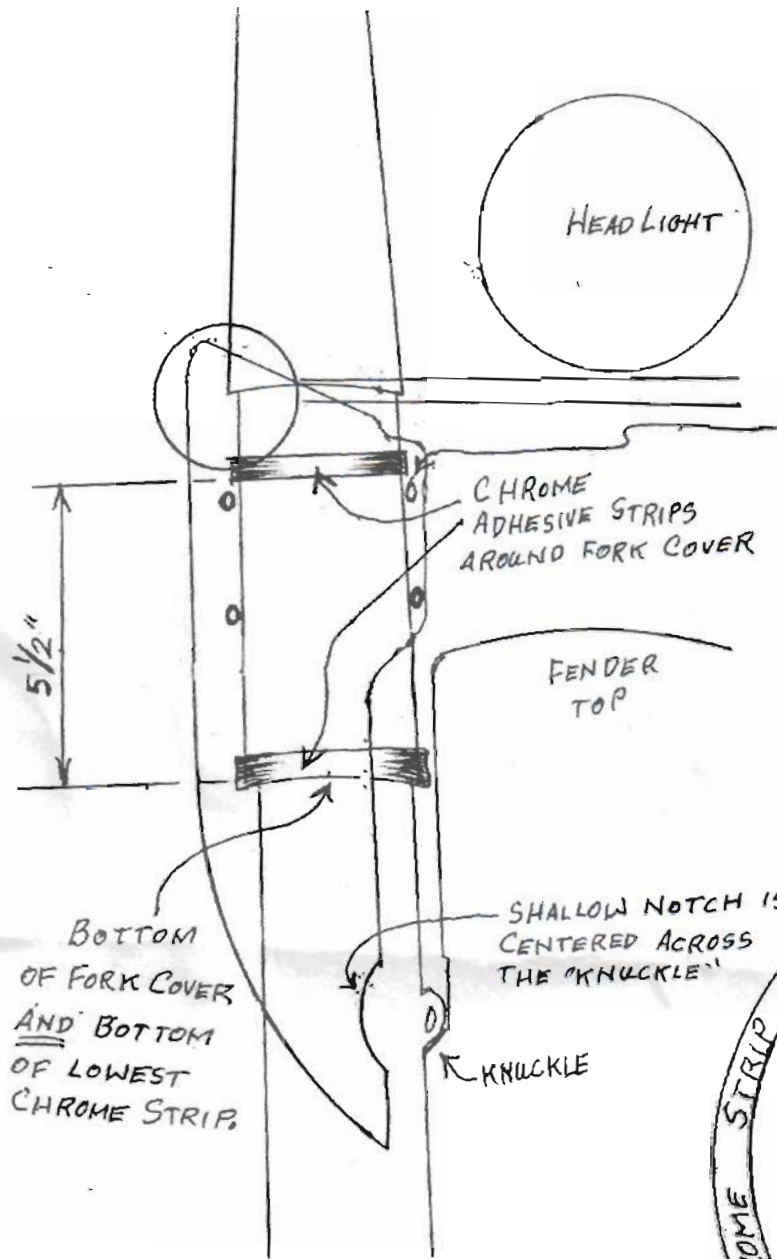 HEADLIGHT
CHROME
ADHESIVE STRIPS
AROUND FORK COVER
5 1/2"
FENDER
TOP
BOTTOM
OF FORK COVER
AND BOTTOM
OF LOWEST
CHROME STRIP.
SHALLOW NOTCH IS
CENTERED ACROSS
THE "KNUCKLE"
KNUCKLE
OME STRIP